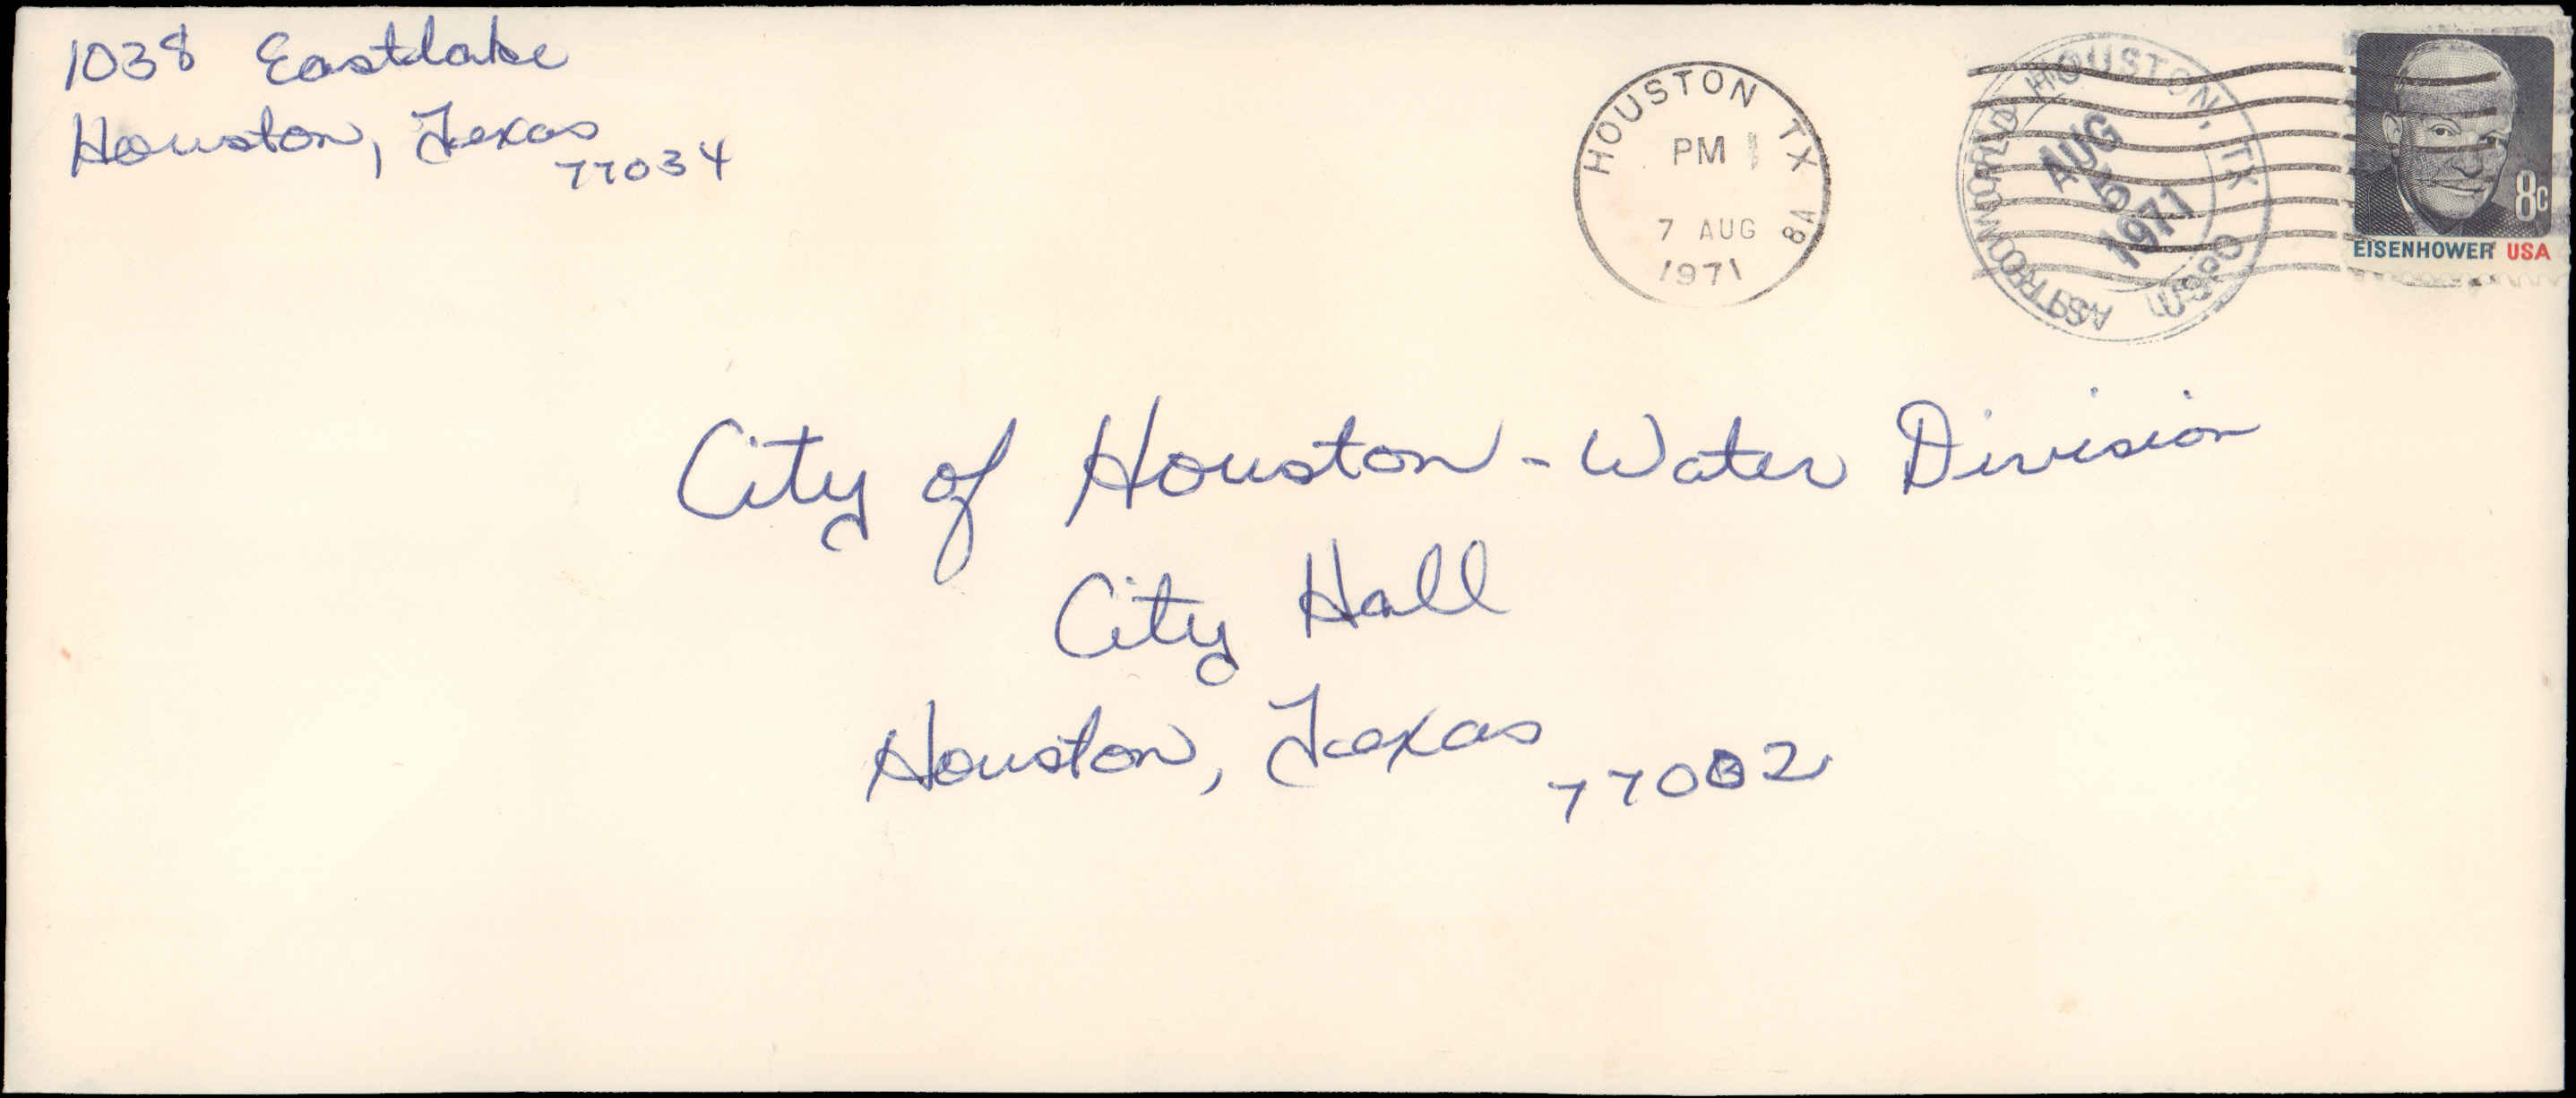 1038 Eastlake
Houston, Texas
77034
HOUSTON TX
PM
7 AUG
1971
8A
HOUSTON, TX
AUG
1971
USPO
8c
EISENHOWER USA
City of Houston - Water Division
City Hall
Houston, Texas
77002